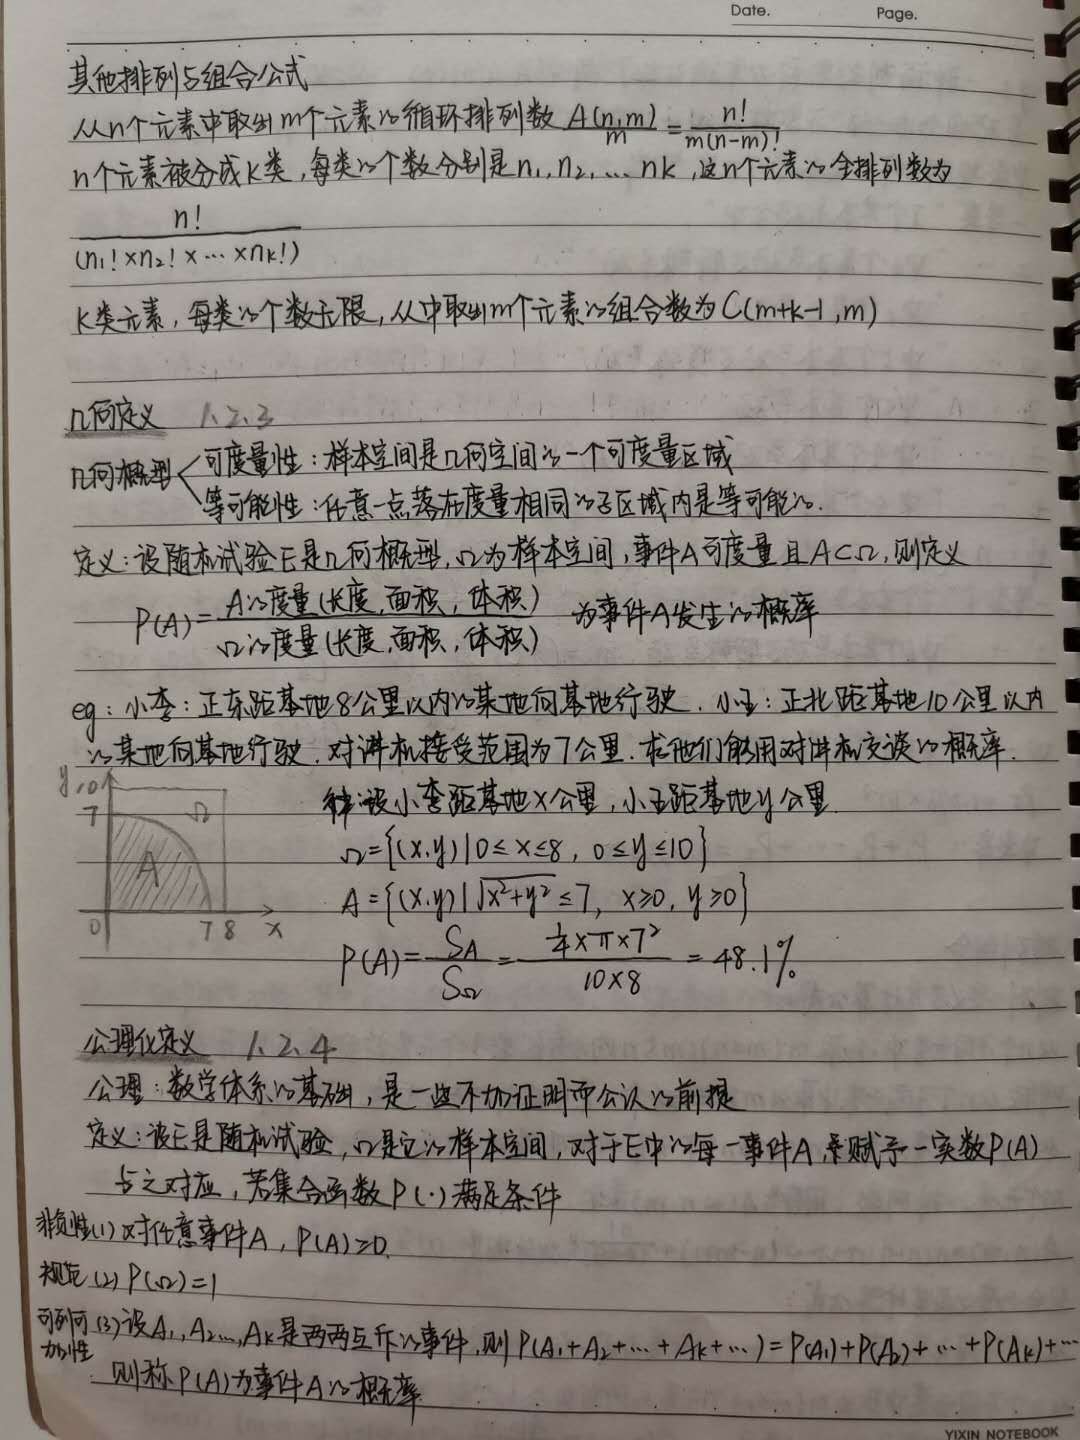 Date. Page.
其他排列与组合公式
从n个元素中取出m个元素的循环排列数 A(n,m)/m = n!/m(n-m)!
n个元素被分成k类，每类的个数分别是n₁,n₂,…nk，这n个元素的全排列数为
n!/(n₁!×n₂!×…×nk!)
k类元素，每类的个数无限，从中取出m个元素的组合数为C(m+k-1,m)
几何定义 1.2.3
几何概型 可度量性：样本空间是几何空间的一个可度量区域
等可能性：任意一点落在度量相同的子区域内是等可能的.
定义：设随机试验E是几何概型，Ω为样本空间，事件A可度量且A⊂Ω，则定义
P(A)= A的度量(长度,面积,体积)/Ω的度量(长度,面积,体积) 为事件A发生的概率
eg：小李：正东距基地8公里以内的某地向基地行驶．小王：正北距基地10公里以内
的某地向基地行驶．对讲机接受范围为7公里．求他们能用对讲机交谈的概率．
y 10 7 Ω A 0 7 8 x
解：设小李距基地x公里，小王距基地y公里．
Ω={(x,y)|0≤x≤8，0≤y≤10}
A={(x,y)|√x²+y²≤7，x≥0，y≥0}
P(A)= S_A/S_Ω = ¼×π×7²/10×8 = 48.1%
公理化定义 1.2.4
公理：数学体系的基础，是一些不加证明而公认的前提
定义：设E是随机试验，Ω是它的样本空间，对于E中的每一事件A，赋予一实数P(A)
与之对应，若集合函数P(·)满足条件
非负性(1)对任意事件A，P(A)≥0.
规范(2)P(Ω)=1
可列可加性(3)设A₁,A₂…,Ak是两两互斥的事件，则P(A₁+A₂+…+Ak+…)=P(A₁)+P(A₂)+…+P(Ak)+…
则称P(A)为事件A的概率
YIXIN NOTEBOOK